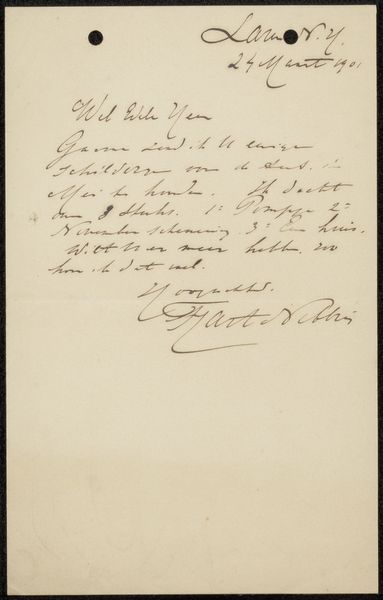 Laren N.H.
24 Maart 1901
Wel Edele Heer
Gaarne zend ik U eenige
schilderyen voor de tent. in
Mei te houden. Ik dacht
om 3 stuks. 1e 2e
November schemering 3e Een huis.
Wilt U er meer hebben, zoo
kan ik dat wel.
Hoogachtend.
Hart Nibbrig